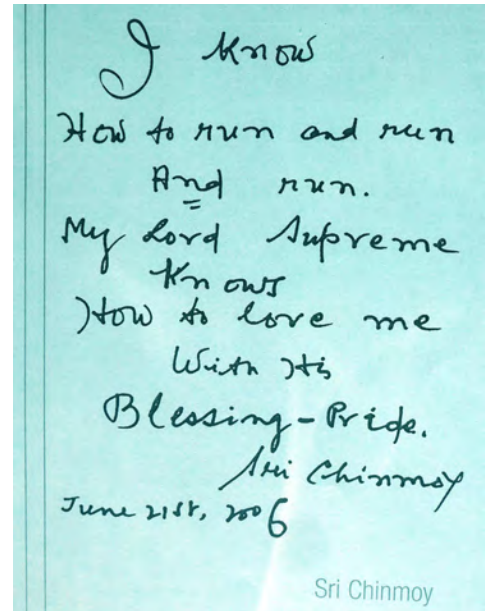 I know
How to run and run
And run.
My Lord Supreme
Knows
How to love me
With His
Blessing-Pride.
Sri Chinmoy
June 21st, 2006
Sri Chinmoy